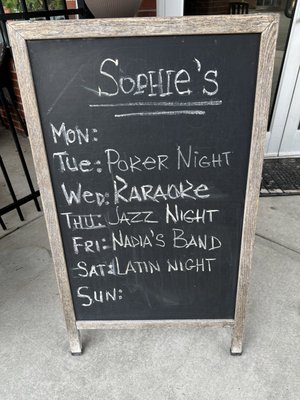 Sophie's
Mon:
Tue: Poker Night
Wed: Karaoke
Thu: Jazz Night
Fri: Nadia's Band
Sat: Latin Night
Sun: